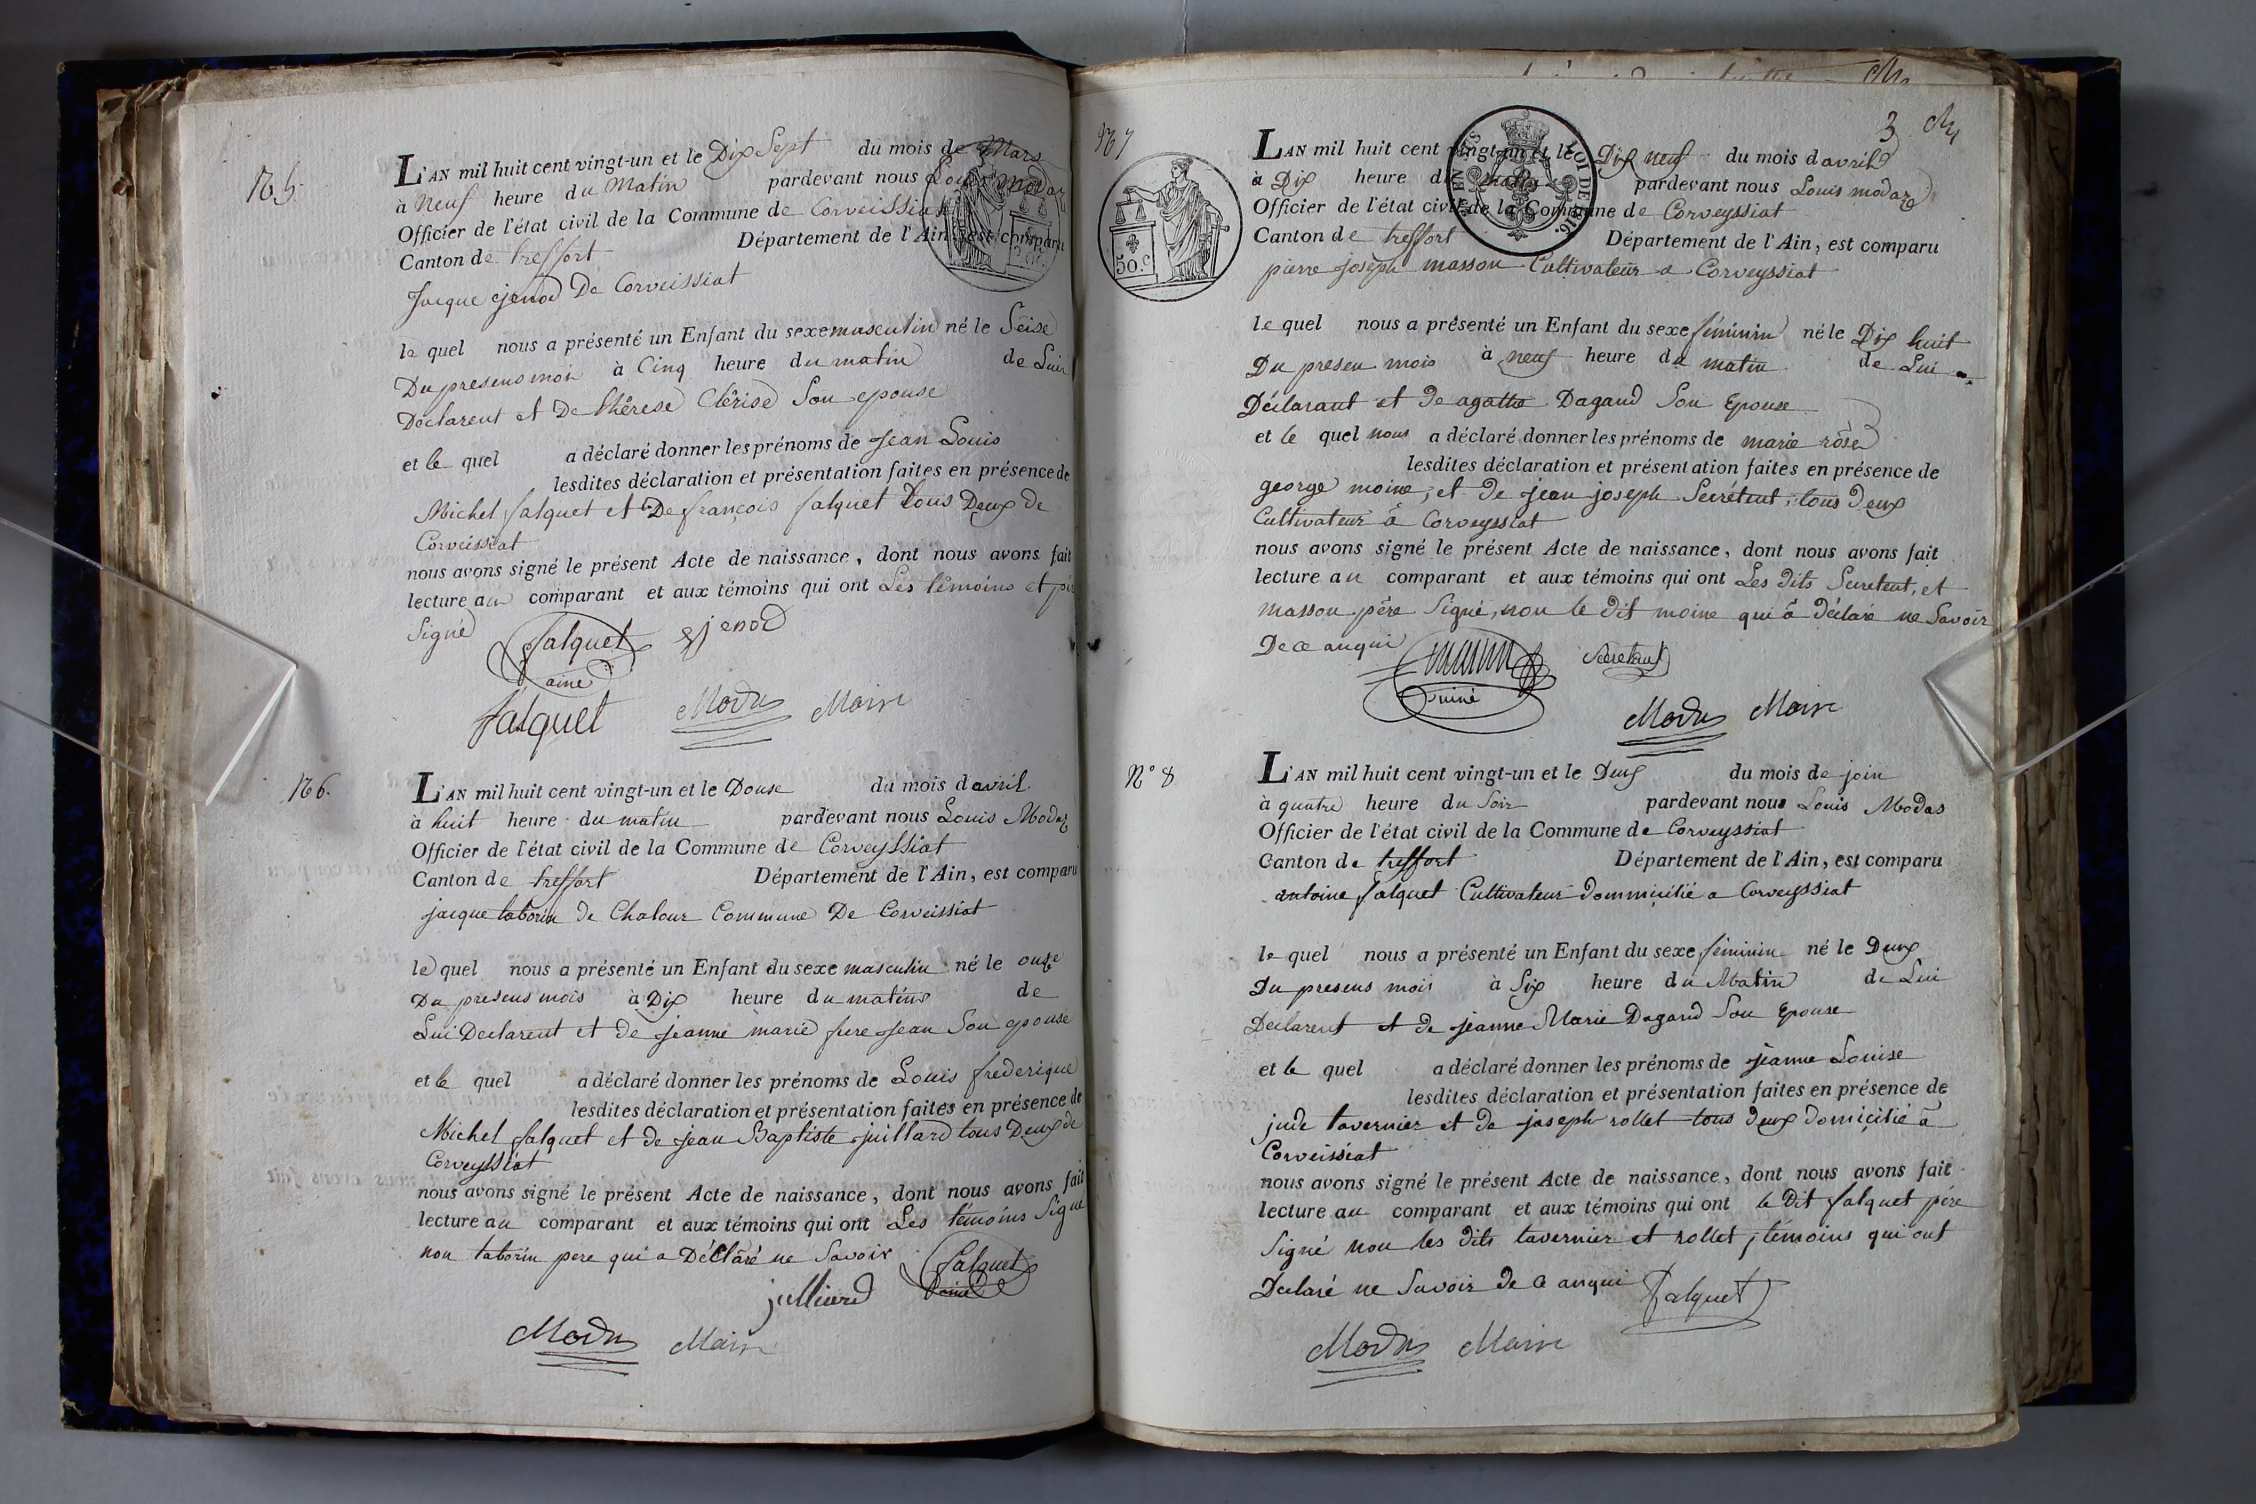 N° 5.
L'AN mil huit cent vingt-un et le Dix Sept du mois de Mars
à Neuf heure du Matin pardevant nous Louis Modaz
Officier de l'état civil de la Commune de Corveissiat
Canton de treffort Département de l'Ain, est comparu
Jacque ejenod De Corveissiat
le quel nous a présenté un Enfant du sexe masculin né le Seise
Du presens mois à Cinq heure du matin de Lui
Declarent et De thérese Clérise Son epouse
et le quel a déclaré donner les prénoms de Jean Louis
lesdites déclaration et présentation faites en présence de
Michel falquet et De françois falquet tous Deux de
Corveissiat
nous avons signé le présent Acte de naissance, dont nous avons fait
lecture au comparant et aux témoins qui ont Les témoins et
Signé falquet ejenod
ainé
falquet Modas Maire
N° 6.
L'AN mil huit cent vingt-un et le Douse du mois d avril
à huit heure du matin pardevant nous Louis Modaz
Officier de l'état civil de la Commune de Corveyssiat
Canton de treffort Département de l'Ain, est comparu
jacque taborin de Chalour Commune De Corveissiat
le quel nous a présenté un Enfant du sexe masculin né le onze
Du presens mois à Dix heure du matin de
Lui Declarent et de jeanne marie fure Jean Son epouse
et le quel a déclaré donner les prénoms de Louis frederique
lesdites déclaration et présentation faites en présence de
Michel falquet et de jean Baptiste juillard tous Deux de
Corveyssiat
nous avons signé le présent Acte de naissance, dont nous avons fait
lecture au comparant et aux témoins qui ont Les témoins Signé
non taborin pere qui a Déclaré ne Savoir falquet
jullierd ainé
Modas Maire
3
N° 7
L'AN mil huit cent vingt-un et le Dix neuf du mois d avril
à Dix heure du matin pardevant nous Louis modaz
Officier de l'état civil de la Commune de Corveyssiat
Canton de treffort Département de l'Ain, est comparu
50.c
LOI DE 1816.
pierre joseph masson Cultivateur a Corveyssiat
le quel nous a présenté un Enfant du sexe féminin né le Dix huit
Du presen mois à neuf heure du matin de Lui
Déclarant et de agathe Dagand Son Epouse
et le quel nous a déclaré donner les prénoms de marie rôse
lesdites déclaration et présentation faites en présence de
george moine, et de jean joseph Secrétent, tous deux
Cultivateur â Corveyssiat
nous avons signé le présent Acte de naissance, dont nous avons fait
lecture au comparant et aux témoins qui ont Les dits Secretent, et
masson père Signé, non le dit moine qui â déclaré ne Savoir
De ce anquis masson Secretant
ainé
Modas Maire
N° 8
L'AN mil huit cent vingt-un et le Deux du mois de join
à quatre heure du Soir pardevant nous Louis Modas
Officier de l'état civil de la Commune de Corveyssiat
Canton de treffort Département de l'Ain, est comparu
antoine falquet Cultivateur dommicilié a Corveyssiat
le quel nous a présenté un Enfant du sexe féminin né le Deux
Du presens mois à Six heure du Matin de Lui
Declarent et de jeanne Marie Dagand Son Epouse
et le quel a déclaré donner les prénoms de jeanne Louise
lesdites déclaration et présentation faites en présence de
jude tavernier et de joseph rollet tous deux domicilié â
Corveissiat
nous avons signé le présent Acte de naissance, dont nous avons fait
lecture au comparant et aux témoins qui ont le Dit falquet pére
Signé non les dits tavernier et rollet, témoins qui ont
Declaré ne Savoir de ce anquis falquet
Modas Maire